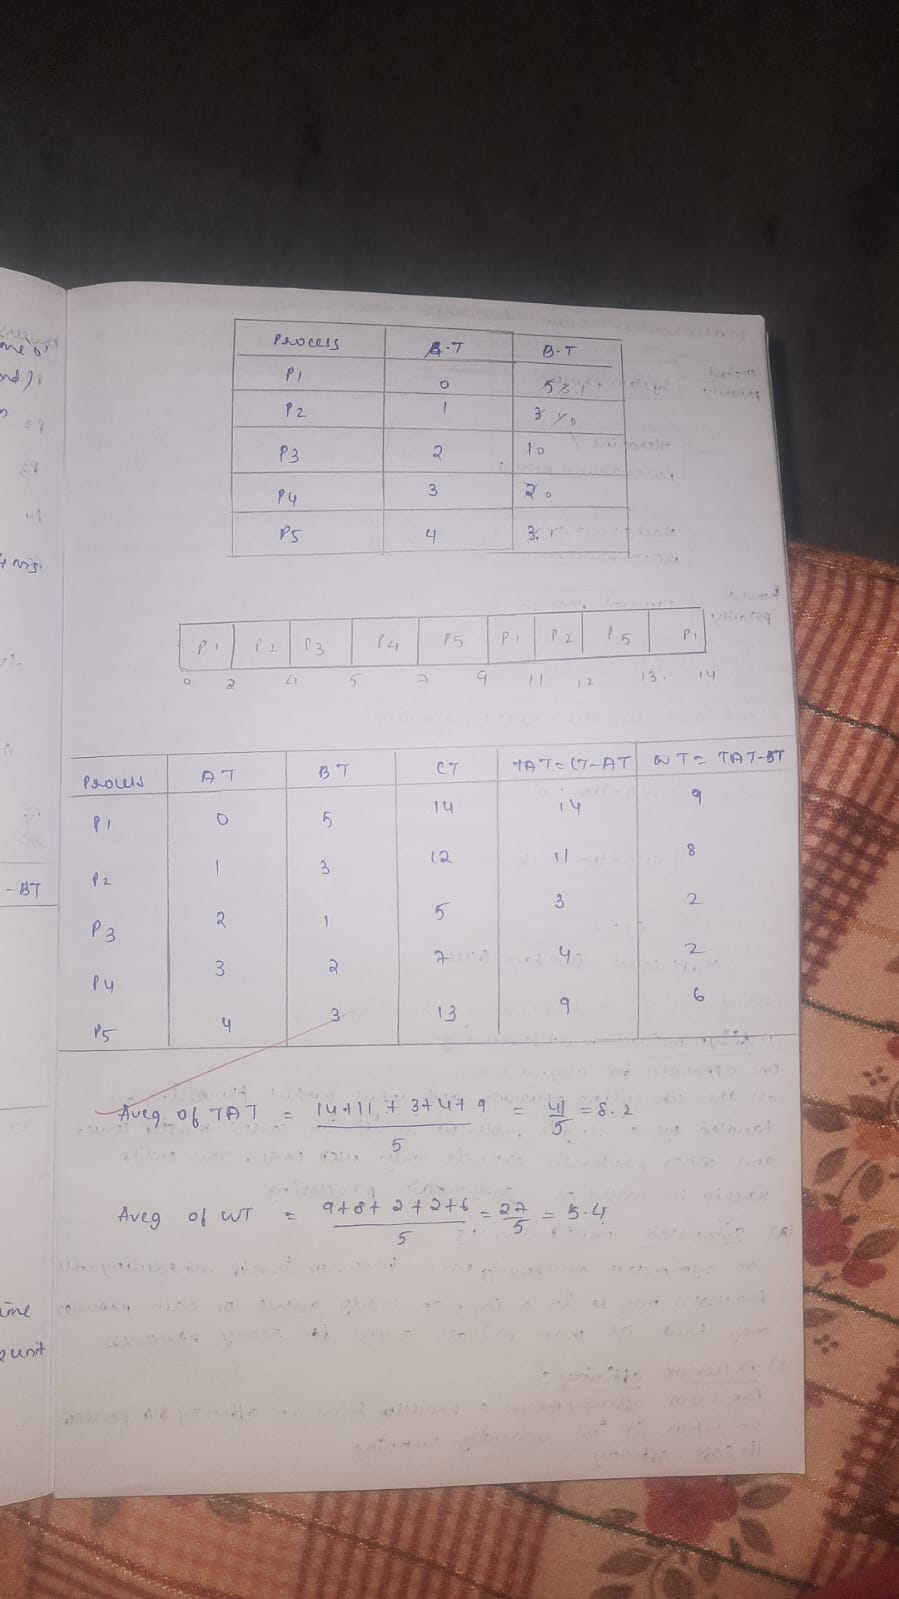 Process A.T B.T
P1 0 5 3 1
P2 1 3 1 0
P3 2 1 0
P4 3 2 0
P5 4 3 1
P1 P2 P3 P4 P5 P1 P2 P5 P1
0 2 4 5 7 9 11 12 13 14
Process AT BT CT TAT=CT-AT WT=TAT-BT
P1 0 5 14 14 9
P2 1 3 12 11 8
P3 2 1 5 3 2
P4 3 2 7 4 2
P5 4 3 13 9 6
Aveg of TAT = 14+11+3+4+9 / 5 = 41/5 = 8.2
Aveg of WT = 9+8+2+2+6 / 5 = 27/5 = 5.4
- BT
unit